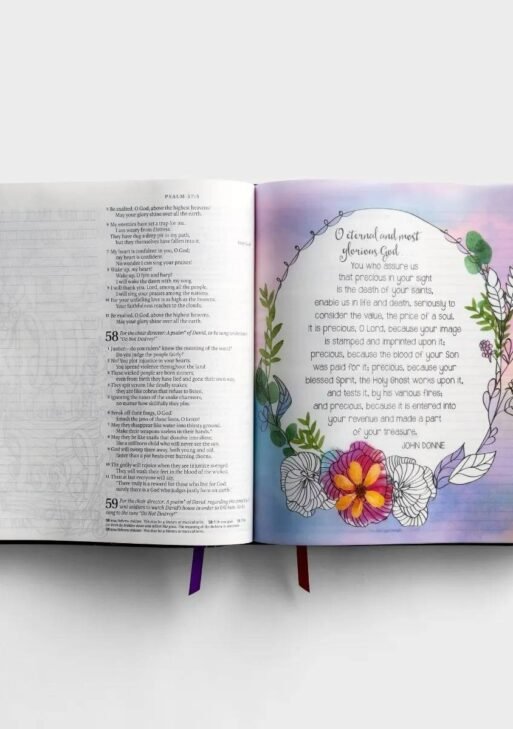 PSALM 57:5
5 Be exalted, O God, above the highest heavens!
May your glory shine over all the earth.
6 My enemies have set a trap for me.
I am weary from distress.
They have dug a deep pit in my path,
but they themselves have fallen into it.
7 My heart is confident in you, O God;
my heart is confident.
No wonder I can sing your praises!
8 Wake up, my heart!
Wake up, O lyre and harp!
I will wake the dawn with my song.
9 I will thank you, Lord, among all the people.
I will sing your praises among the nations.
10 For your unfailing love is as high as the heavens.
Your faithfulness reaches to the clouds.
11 Be exalted, O God, above the highest heavens.
May your glory shine over all the earth.
58 For the choir director: A psalm of David, to be sung to the tune
"Do Not Destroy!"
1 Justice—do you rulers know the meaning of the word?
Do you judge the people fairly?
2 No! You plot injustice in your hearts.
You spread violence throughout the land.
3 These wicked people are born sinners;
even from birth they have lied and gone their own way.
4 They spit venom like deadly snakes;
they are like cobras that refuse to listen,
5 ignoring the tunes of the snake charmers,
no matter how skillfully they play.
6 Break off their fangs, O God!
Smash the jaws of these lions, O LORD!
7 May they disappear like water into thirsty ground.
Make their weapons useless in their hands.
8 May they be like snails that dissolve into slime,
like a stillborn child who will never see the sun.
9 God will sweep them away, both young and old,
faster than a pot heats over burning thorns.
10 The godly will rejoice when they see injustice avenged.
They will wash their feet in the blood of the wicked.
11 Then at last everyone will say,
"There truly is a reward for those who live for God;
surely there is a God who judges justly here on earth."
59 For the choir director: A psalm of David, regarding the time Saul
sent soldiers to watch David's house in order to kill him. To be
sung to the tune "Do Not Destroy!"
O eternal and most
glorious God
You who assure us
that precious in your sight
is the death of your saints,
enable us in life and death, seriously to
consider the value, the price of a soul.
It is precious, O Lord, because your image
is stamped and imprinted upon it;
precious, because the blood of your Son
was paid for it; precious, because your
blessed Spirit, the Holy Ghost works upon it,
and tests it, by his various fires;
and precious, because it is entered into
your revenue and made a part
of your treasure.
JOHN DONNE